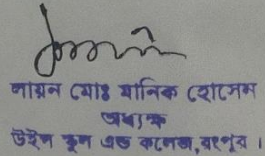 লায়ন মোঃ মানিক হোসেন
অধ্যক্ষ
উইন স্কুল এন্ড কলেজ, রংপুর ।